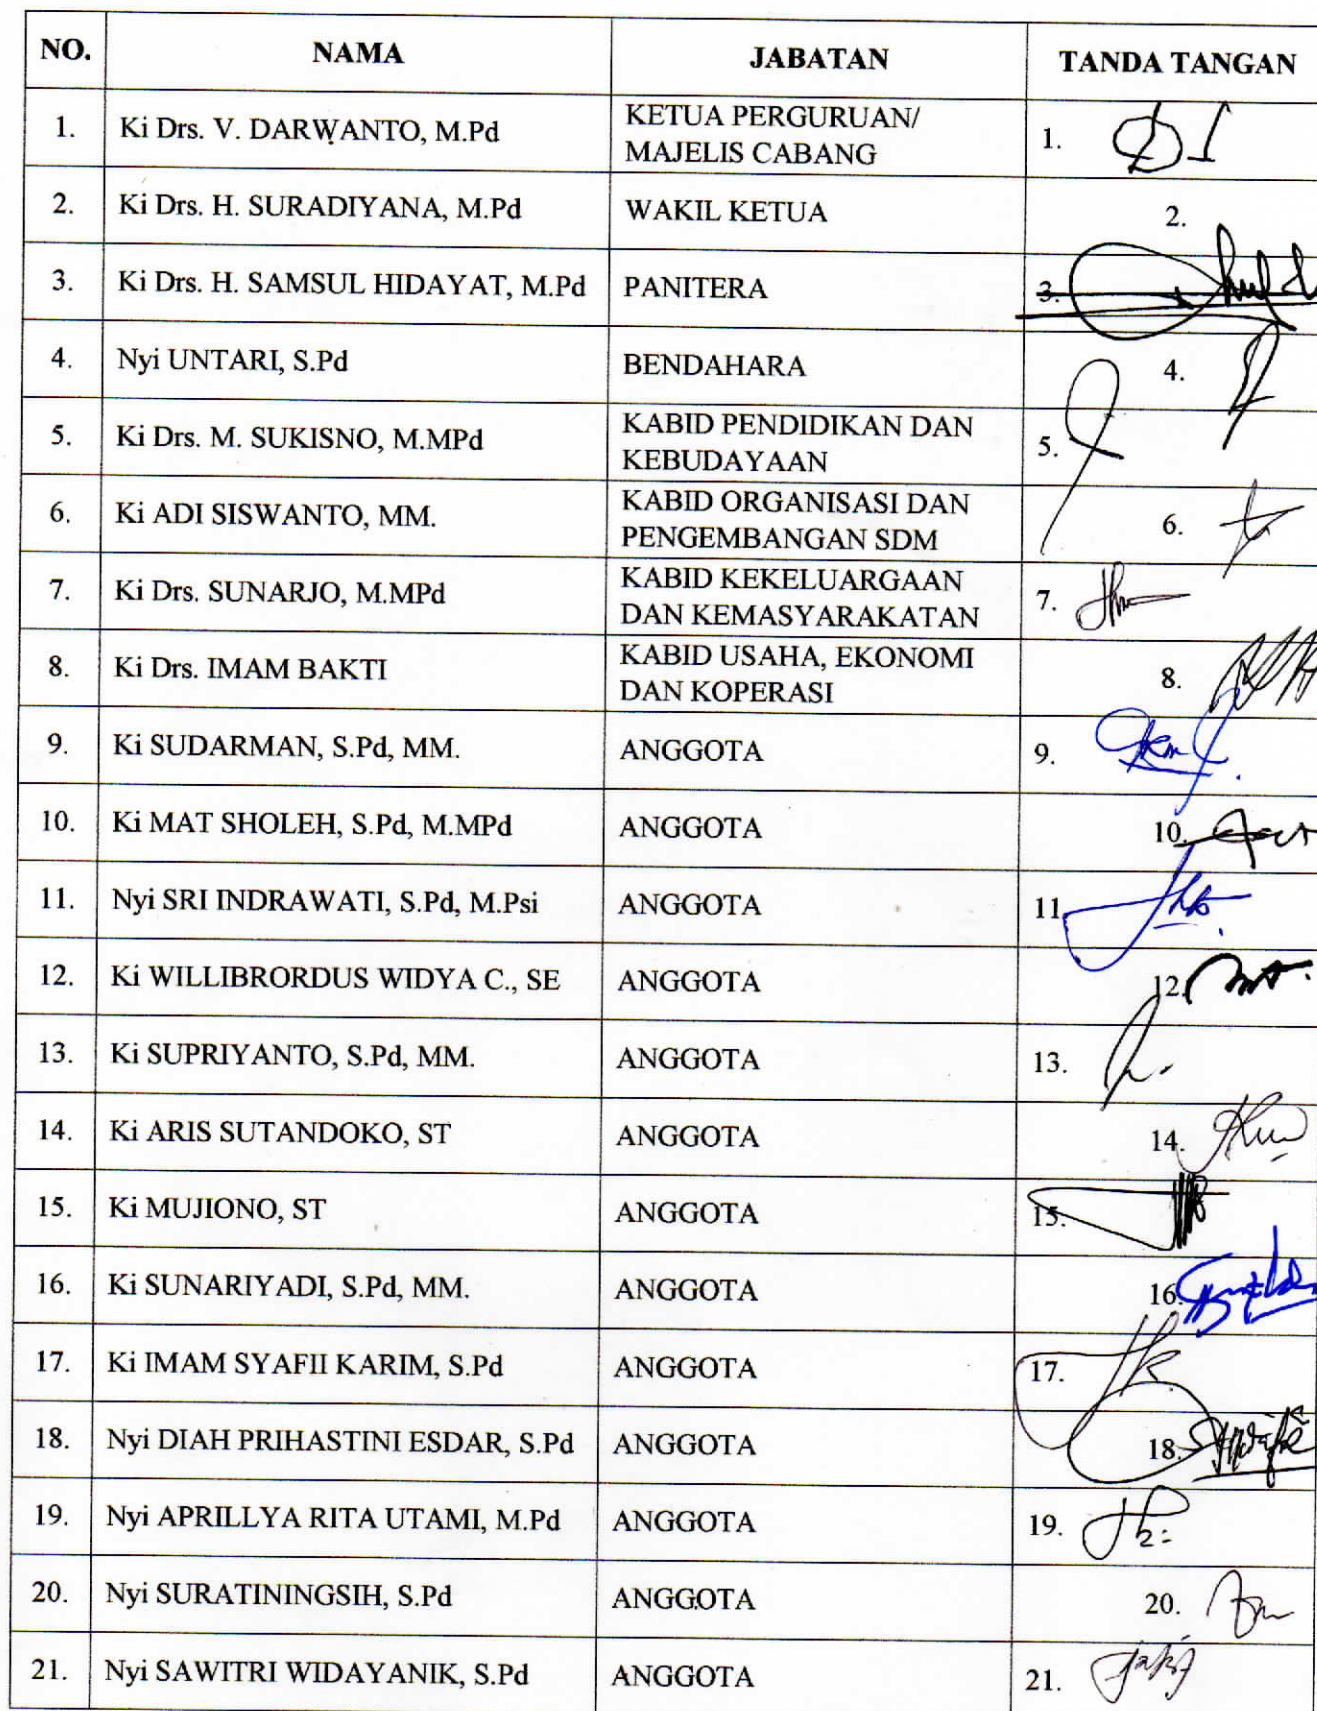 NO. NAMA JABATAN TANDA TANGAN
1. Ki Drs. V. DARWANTO, M.Pd KETUA PERGURUAN/
MAJELIS CABANG 1.
2. Ki Drs. H. SURADIYANA, M.Pd WAKIL KETUA 2.
3. Ki Drs. H. SAMSUL HIDAYAT, M.Pd PANITERA 3.
4. Nyi UNTARI, S.Pd BENDAHARA 4.
5. Ki Drs. M. SUKISNO, M.MPd KABID PENDIDIKAN DAN
KEBUDAYAAN 5.
6. Ki ADI SISWANTO, MM. KABID ORGANISASI DAN
PENGEMBANGAN SDM 6.
7. Ki Drs. SUNARJO, M.MPd KABID KEKELUARGAAN
DAN KEMASYARAKATAN 7.
8. Ki Drs. IMAM BAKTI KABID USAHA, EKONOMI
DAN KOPERASI 8.
9. Ki SUDARMAN, S.Pd, MM. ANGGOTA 9.
10. Ki MAT SHOLEH, S.Pd, M.MPd ANGGOTA 10.
11. Nyi SRI INDRAWATI, S.Pd, M.Psi ANGGOTA 11.
12. Ki WILLIBRORDUS WIDYA C., SE ANGGOTA 12.
13. Ki SUPRIYANTO, S.Pd, MM. ANGGOTA 13.
14. Ki ARIS SUTANDOKO, ST ANGGOTA 14.
15. Ki MUJIONO, ST ANGGOTA 15.
16. Ki SUNARIYADI, S.Pd, MM. ANGGOTA 16.
17. Ki IMAM SYAFII KARIM, S.Pd ANGGOTA 17.
18. Nyi DIAH PRIHASTINI ESDAR, S.Pd ANGGOTA 18.
19. Nyi APRILLYA RITA UTAMI, M.Pd ANGGOTA 19.
20. Nyi SURATININGSIH, S.Pd ANGGOTA 20.
21. Nyi SAWITRI WIDAYANIK, S.Pd ANGGOTA 21.